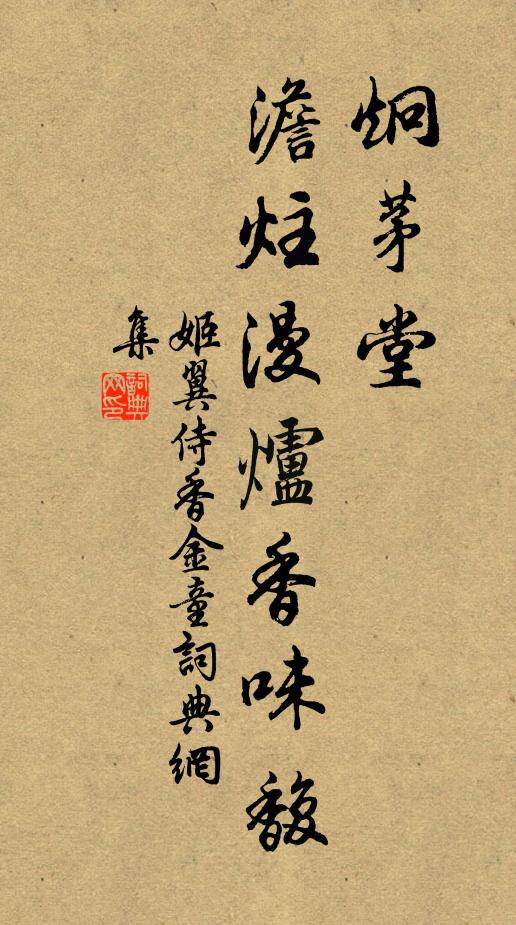 炯茅堂
澹炷漫爐香味馥
姬翼侍香金童詞典網
集
詞典
网印